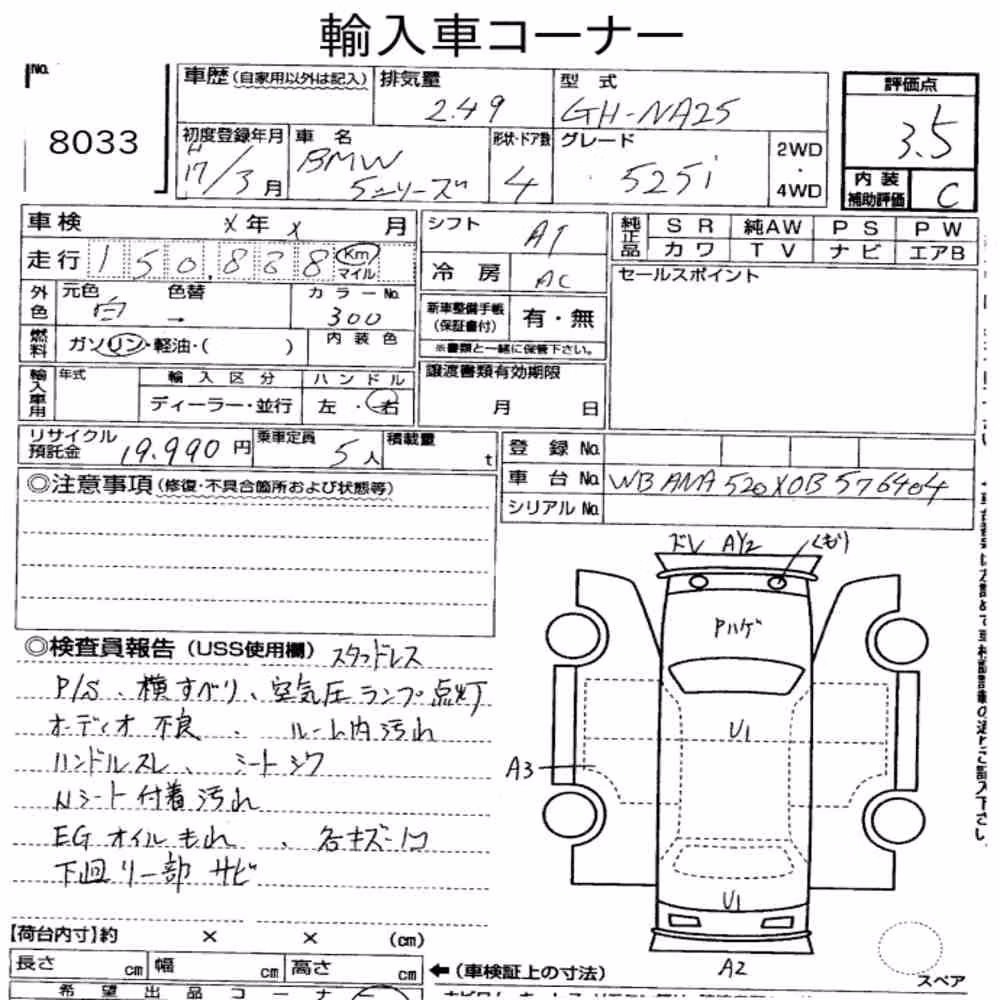 輸入車コーナー
No.
8033
車歴(自家用以外は記入)
排気量
2.49
型 式
GH-NA25
評価点
3.5
内装
補助評価
C
初度登録年月
H
17/3月
車 名
BMW
5シリーズ
形状・ドア数
4
グレード
525i
2WD
・
4WD
車検 X年 X 月
走行 150,888 Km
マイル
外色 元色 白 色替 → カラーNo. 300
燃料 ガソリン・軽油・( ) 内装色
輸入車用 年式 輸入区分 ハンドル
ディーラー・並行 左・右
シフト AT
冷 房 AC
新車整備手帳
(保証書付)
有・無
※書類と一緒に保管下さい。
譲渡書類有効期限
月 日
純正品 SR 純AW PS PW
カワ TV ナビ エアB
セールスポイント
リサイクル
預託金
19,990円
乗車定員
5人
積載量
t
登 録 No.
車 台 No. WBANA520X0B576404
シリアル No.
◎注意事項(修復・不具合箇所および状態等)
◎検査員報告(USS使用欄) スタッドレス
P/S、横すべり、空気圧ランプ点灯
オーディオ不良、ルーム内汚れ
ハンドルスレ、シートシワ
Nシート付着汚れ
EGオイルもれ、各キズ凹
下廻り一部サビ
ズレ A Y2 くもり
Pハゲ
U1
A3
U1
A2
【荷台内寸】約 × × (cm)
長さ cm 幅 cm 高さ cm
←(車検証上の寸法)
スペア
希望出品コーナー